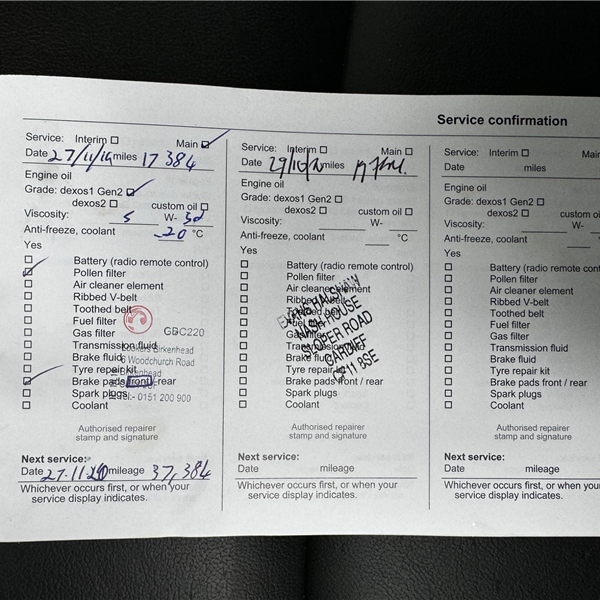 Service confirmation
Service: Interim ☐ Main ☑
Date 27/11/19 miles 17 384
Engine oil
Grade: dexos1 Gen2 ☑
dexos2 ☐ custom oil ☐
Viscosity: 5 W- 30
Anti-freeze, coolant -20 °C
Yes
☐ Battery (radio remote control)
☑ Pollen filter
☐ Air cleaner element
☐ Ribbed V-belt
☐ Toothed belt
☐ Fuel filter
☐ Gas filter
GBC220
☐ Transmission fluid
☐ Brake fluid
Birkenhead
Woodchurch Road
☐ Tyre repair kit
☑ Brake pads front / rear
☐ Spark plugs
Tel:- 0151 200 900
☐ Coolant
Authorised repairer
stamp and signature
Next service:
Date 27.11.20 mileage 37,384
Whichever occurs first, or when your
service display indicates.
Service: Interim ☐ Main ☐
Date miles
Engine oil
Grade: dexos1 Gen2 ☐
dexos2 ☐ custom oil ☐
Viscosity: W-
Anti-freeze, coolant °C
Yes
☐ Battery (radio remote control)
☐ Pollen filter
☐ Air cleaner element
☐ Ribbed V-belt
☐ Toothed belt
☐ Fuel filter
☐ Gas filter
☐ Transmission fluid
☐ Brake fluid
☐ Tyre repair kit
☐ Brake pads front / rear
☐ Spark plugs
☐ Coolant
EVANS HALSHAW
NASH HOUSE
SLOPER ROAD
CARDIFF
CF11 8SE
Authorised repairer
stamp and signature
Next service:
Date mileage
Whichever occurs first, or when your
service display indicates.
Service: Interim ☐
Date miles
Engine oil
Grade: dexos1 Gen2 ☐
dexos2 ☐ custom oi
Viscosity: W-
Anti-freeze, coolant
Yes
☐ Battery (radio remote control)
☐ Pollen filter
☐ Air cleaner element
☐ Ribbed V-belt
☐ Toothed belt
☐ Fuel filter
☐ Gas filter
☐ Transmission fluid
☐ Brake fluid
☐ Tyre repair kit
☐ Brake pads front / rear
☐ Spark plugs
☐ Coolant
Authorised repairer
stamp and signature
Next service:
Date mileage
Whichever occurs first, or when your
service display indicates.